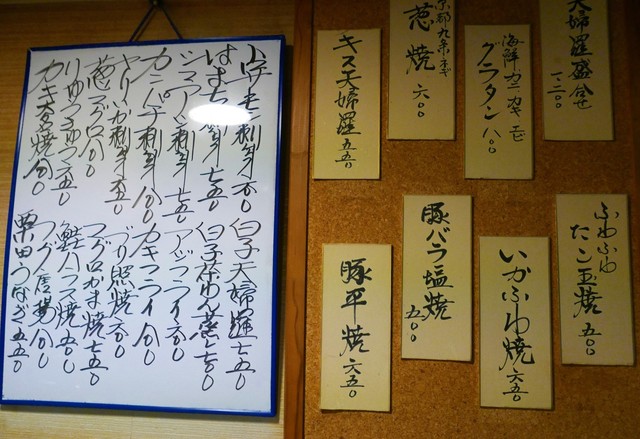 サーモン刺身
はまち刺身 七五〇
シマアジ刺身 七五〇
カンパチ刺身 八〇〇
やりいか刺身 六五〇
葱マグロ 八〇〇
カキ 焼 八〇〇
白子天婦羅 七五〇
白子茶わん蒸 七五〇
アジフライ 六五〇
カキフライ 八〇〇
ぶり照焼 六五〇
マグロカマ焼 七五〇
鮭ハラス焼 五〇〇
フグ唐揚 八〇〇
天婦羅盛合せ
一二〇〇
海鮮カニカキエビ
グラタン 八〇〇
京都九条ネギ
葱焼 六〇〇
キス天婦羅 五五〇
ふわふわ
たこ玉焼 五〇〇
いかふわ焼 六五〇
豚バラ塩焼
五〇〇
豚平焼 六五〇